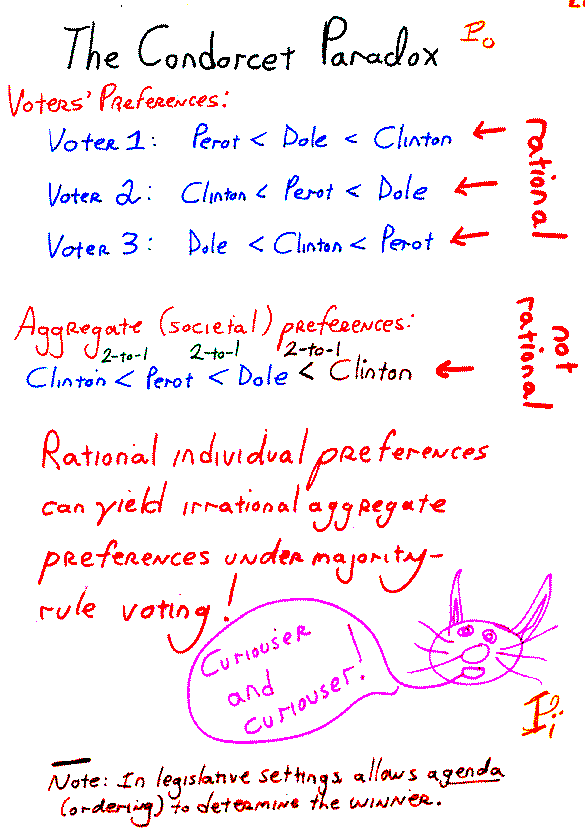 The Condorcet Paradox
Voters' Preferences:
Voter 1: Perot < Dole < Clinton ←
Voter 2: Clinton < Perot < Dole ←
Voter 3: Dole < Clinton < Perot ←
rational
Aggregate (societal) preferences:
2-to-1 2-to-1 2-to-1
Clinton < Perot < Dole < Clinton ←
not
rational
Rational individual preferences
can yield irrational aggregate
preferences under majority-
rule voting!
Curiouser
and
curiouser!
Note: In legislative settings allows agenda
(ordering) to determine the winner.